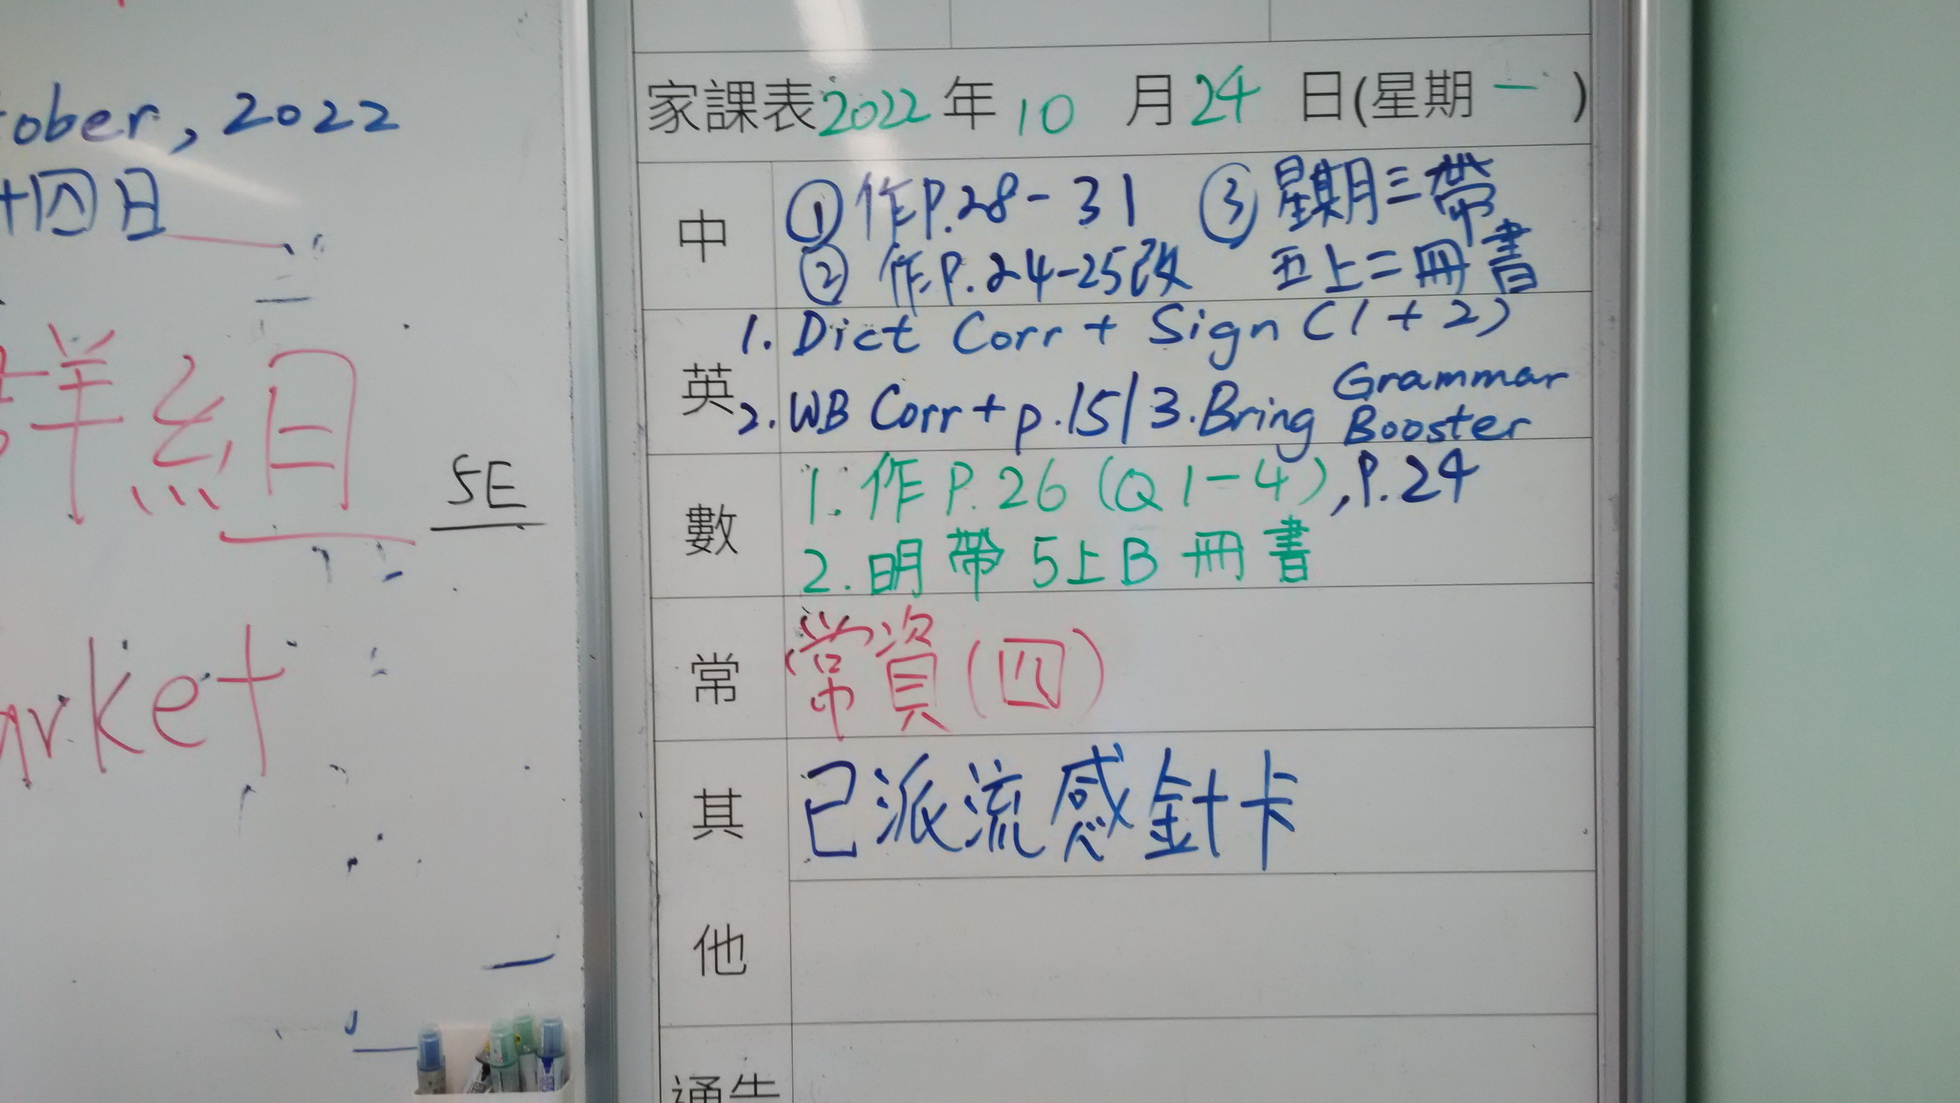 ober, 2022
十四日
詳組
5E
arket
家課表2022年10月24日(星期一)
中
①作P.28-31 ③星期三帶
②作P.24-25改 五上二冊書
英
1. Dict Corr + Sign (1+2)
2. WB Corr + p.15/3. Bring Grammar Booster
數
1. 作P.26 (Q1-4), P.24
2. 明帶5上B冊書
常
常資(四)
其他
已派流感針卡
通告